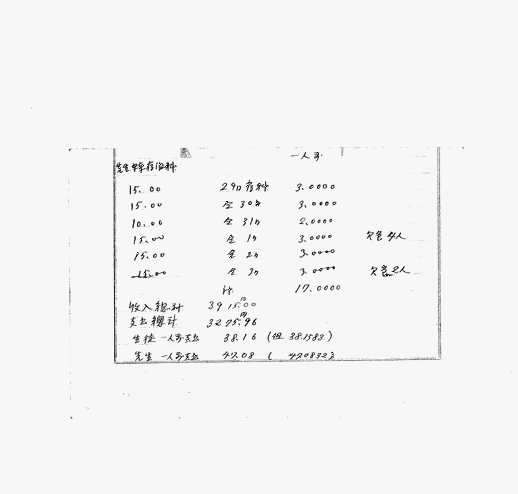 一人分
15.00 29日夜料 3.0000
15.00 仝 30日 3.0000
10.00 仝 31日 2.0000
15.00 仝 1日 3.0000 欠食4人
15.00 仝 2日 3.0000
15.00 仝 3日 3.0000 欠食2人
計 17.0000
收入總計 3915.00円
支出總計 3275.96円
生徒一人分支出 38.16 (但 38.1583)
先生一人分支出 47.08 ( 470832)